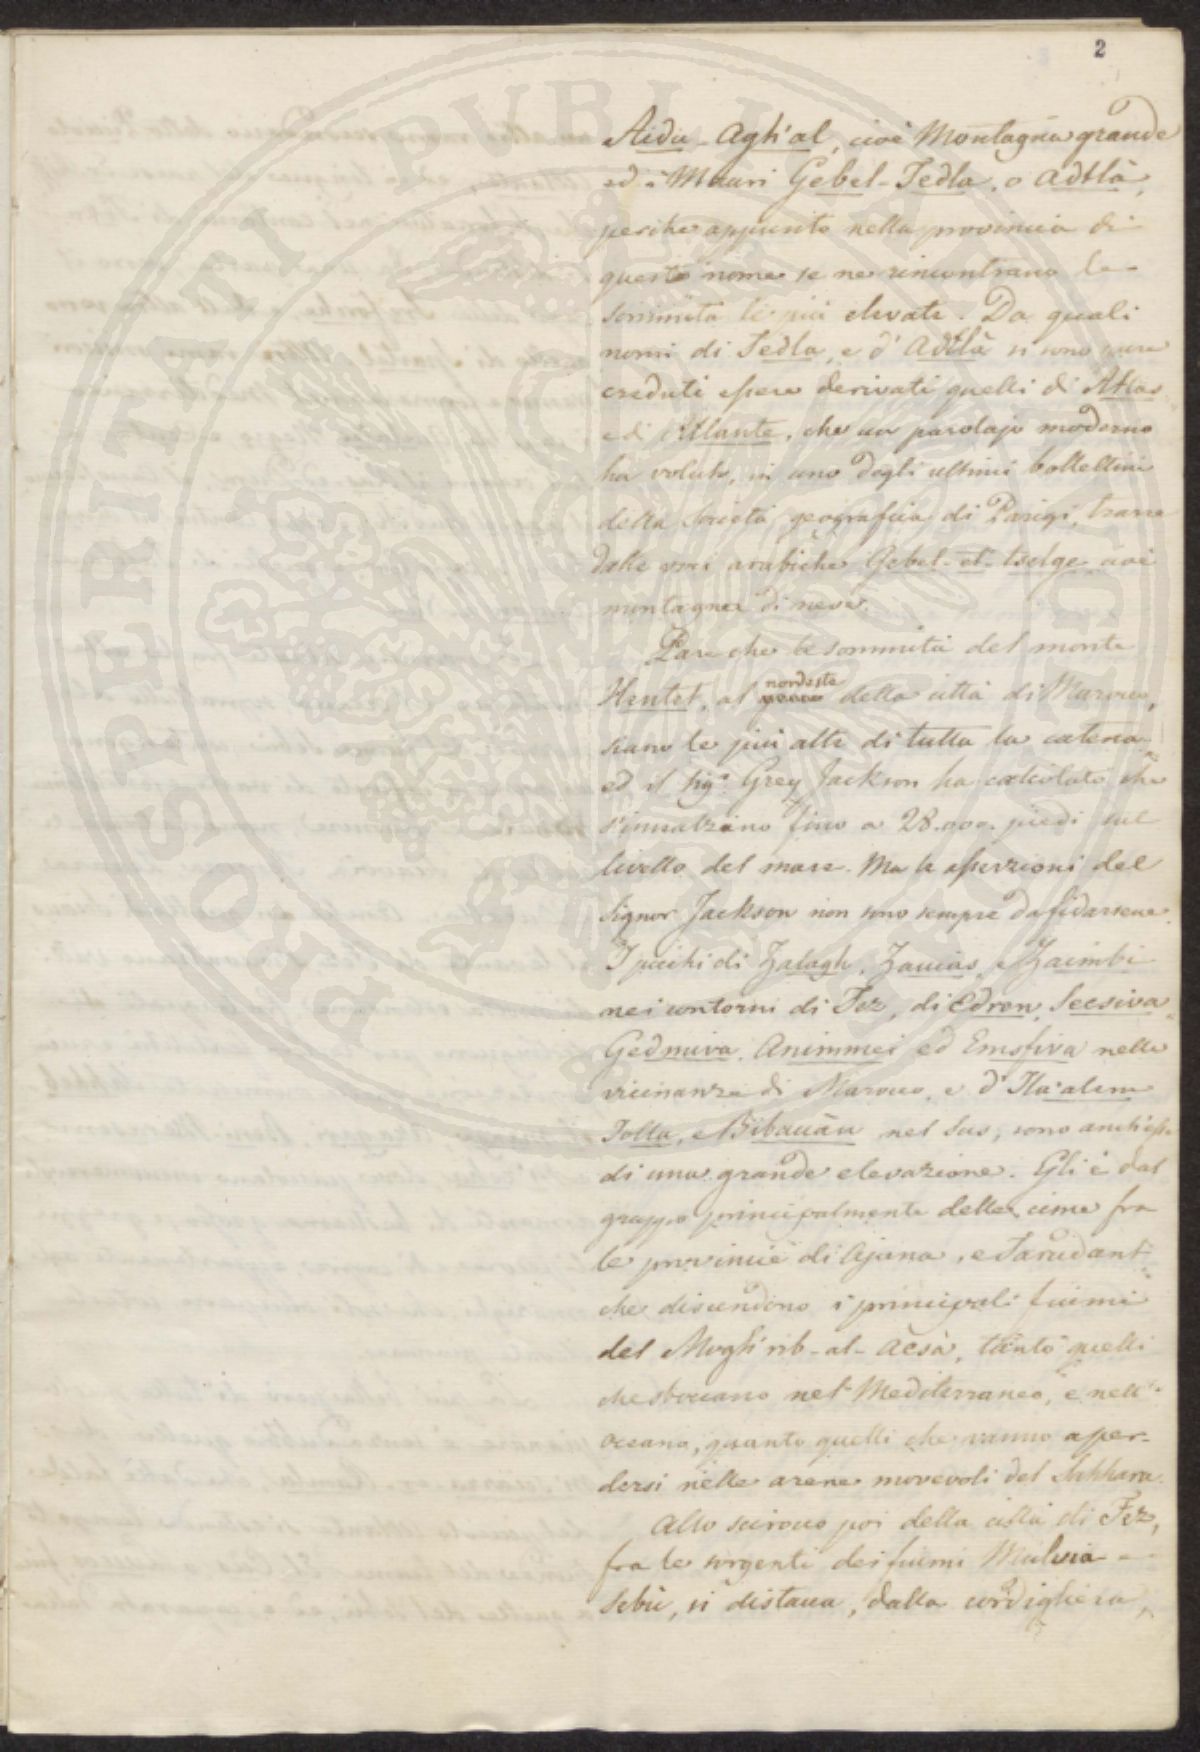 2
Aidu-Agh'al, cioè Montagna grande
ed i Mauri Gebel-Tedla, o Adtlà,
perchè appunto nella provincia di
questo nome se ne rincontrano le
sommità le più elevate. Da quali
nomi di Tedla, e d'Adtlà si sono pure
creduti essere derivati quelli di Atlas
e di Atlante, che un parolajo moderno
ha voluto, in uno degli ultimi bollettini
della Società geografica di Parigi, trarre
dalle voci arabiche Gebel-et-tselge cioè
montagna di neve.
Pare che le sommità del monte
Hentet, al nordeste della città di Marocco,
siano le più alte di tutta la catena
ed il Sigr Grey Jackson ha calcolato che
s'innalzino fino a 28.000. piedi sul
livello del mare. Ma le asserzioni del
Signor Jackson non sono sempre da fidarsene.
I picchi di Zalagh, Zauias, e Zaimbi
nei contorni di Fez, di Edron, Secsiva,
Gedmiva, Animmei ed Emsfiva nelle
vicinanze di Marocco, e d'Ila'alem
Tolla, e Bibauàn nel Sus, sono anch'essi
di una grande elevazione. Gli è dal
gruppo principalmente delle cime fra
le provincie di Ajana, e Tarudant
che discendono i principali fiumi
del Mogh'rib-al-Acsà, tanto quelli
che sboccano nel Mediterraneo, e nell'
oceano, quanto quelli che vanno a per-
dersi nelle arene movevoli del Sahhara.
Allo scirocco poi della città di Fez,
fra le sorgenti dei fiumi Muluia e
Sebù, si distacca, dalla cordigliera,
PROSPERITATI PUBLICAE